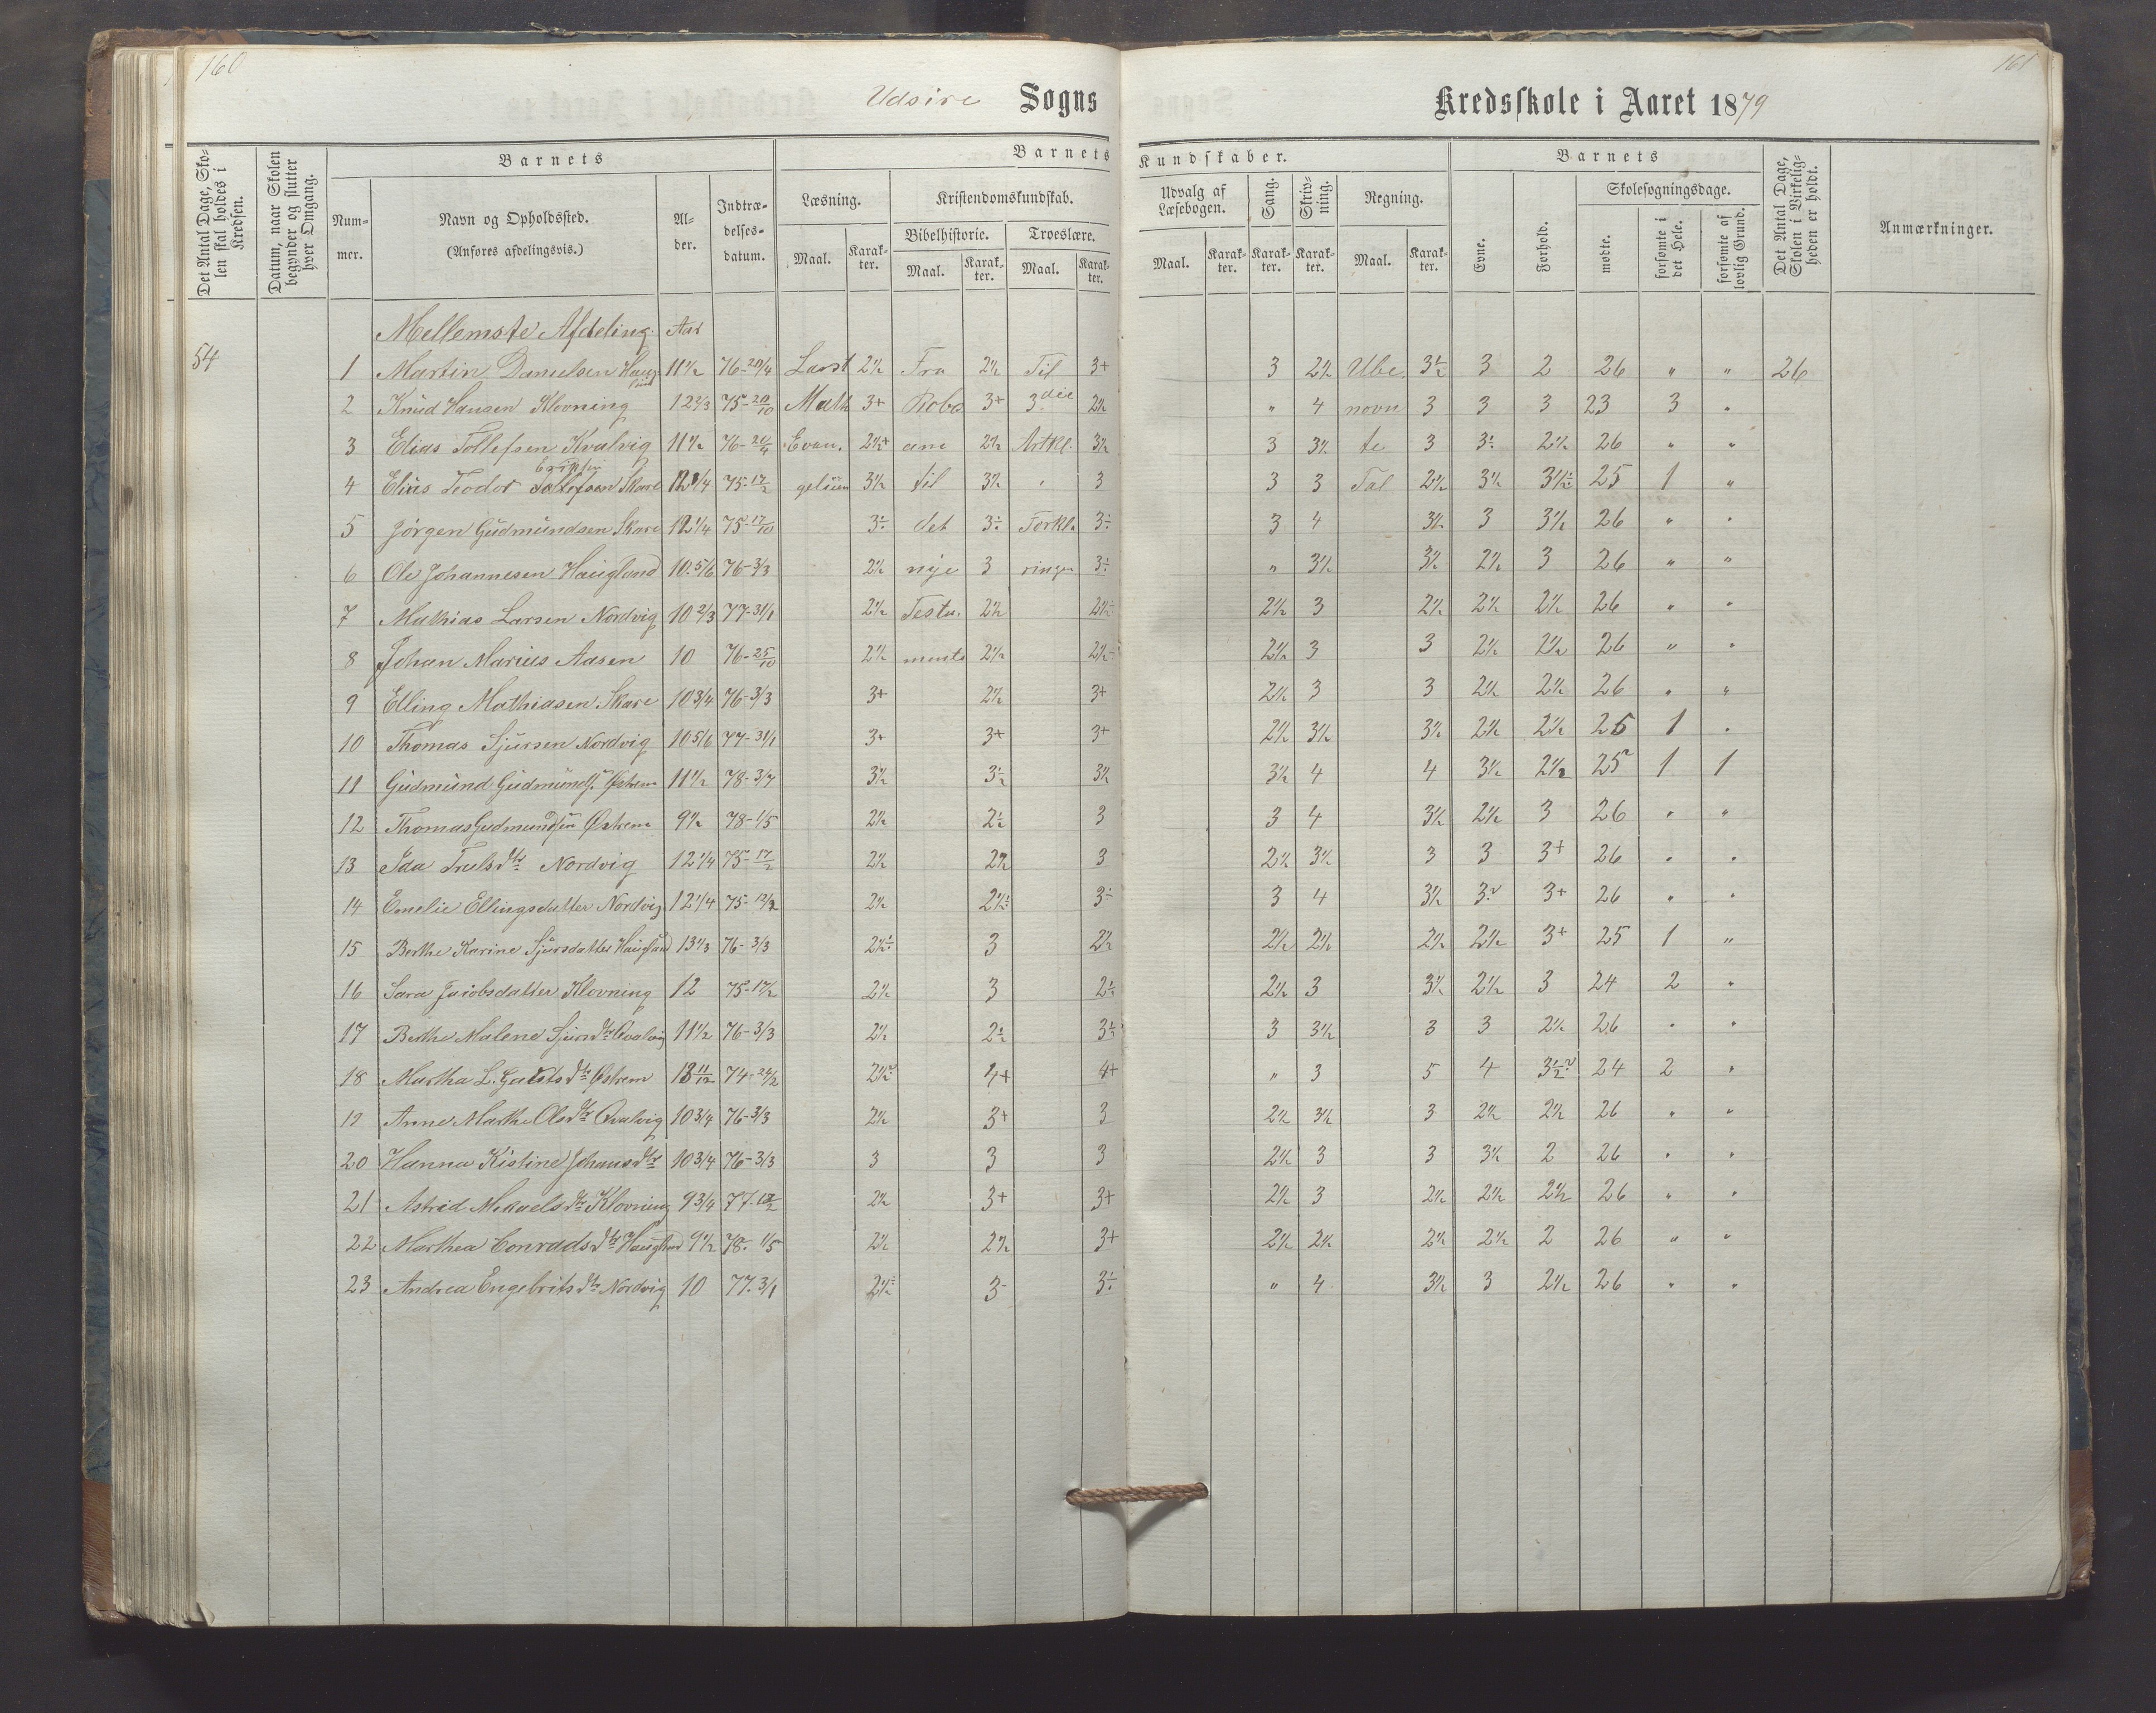 160
161
Udsire Sogns
Kredsskole i Aaret 1879
Det Antal Dage, Skolen skal holdes i Kredsen.
Datum, naar Skolen begynder og slutter hver Omgang.
Barnets
Barnets
Kundskaber.
Barnets
Det Antal Dage, Skolen i Virkeligheden er holdt.
Anmærkninger.
Nummer.
Navn og Opholdssted.
(Anføres afdelingsvis.)
Alder.
Indtrædelsesdatum.
Læsning.
Kristendomskundskab.
Bibelhistorie.
Troeslære.
Udvalg af Læsebogen.
Sang.
Skrivning.
Regning.
Evne.
Forhold.
Skolesøgningsdage.
mødte.
forsømte i det Hele.
forsømte af lovlig Grund.
Maal. Karakter. Maal. Karakter. Maal. Karakter.
Maal. Karakter. Karakter. Karakter. Maal. Karakter.
Mellemste Afdeling. Aar
54 1 Martin Danielsen Haugland 11 1/2 76-20/4 Læst 2 1/2 Fra 2 1/2 Til 3+ 3 2 1/2 Ube 3 1/2 3 2 26 " " 26
2 Knud Hansen Klovning 12 2/3 75-20/10 Math 3+ Robo 3+ 3die 2 1/2 " 4 novn 3 3 3 23 3 "
3 Elias Tollefsen Kvalvig 11 1/2 76-20/4 Evan. 2 1/2+ am 2 1/2 Artkl. 3 1/2 3 3 1/2 te 3 3÷ 2 1/2 26 " "
4 Elias Teodor Skare 12 1/4 75-17/2 gelium 3 1/2 til 3 1/2 3 3 3 Tal 2 1/2 3 1/2 3 1/2÷ 25 1 "
5 Jörgen Gudmundsen Skare 12 1/4 75-17/10 3÷ det 3÷ Forkla 3÷ 3 4 3 1/2 3 3 1/2 26 " "
6 Ole Johannesen Haugland 10 5/6 76-3/3 2 1/2 nye 3 ringen 3÷ " 3 1/2 3 1/2 2 1/2 3 26 " "
7 Mathias Larsen Nordvig 10 2/3 77-31/1 2 1/2 Testa. 2 1/2 2 1/2÷ 2 1/2 3 2 1/2 2 1/2 2 1/2 26 " "
8 Johan Marius Aasen 10 76-25/10 2 1/2 mente 2 1/2 2 1/2÷ 2 1/2 3 3 2 1/2 2 1/2 26 " "
9 Elling Mathiasen Skare 10 3/4 76-3/3 3+ 2 1/2 3+ 2 1/2 3 3 2 1/2 2 1/2 26 " "
10 Thomas Sjursen Nordvig 10 5/6 77-31/1 3+ 3+ 3+ 2 1/2 3 1/2 3 1/2 2 1/2 2 1/2 25 1 "
11 Gudmund Gudmunds. Østrem 11 1/2 78-3/7 3 1/2 3 1/2 3 1/2 3 1/2 4 4 3 1/2 2 1/2 25 1 1
12 Thomas Gudmundsen Østrem 9 1/2 78-1/5 2 1/2 2 1/2 3 3 4 3 1/2 2 1/2 3 26 " "
13 Ida Trulsdtr Nordvig 12 1/4 75-17/2 2 1/2 2 1/2 3 2 1/2 3 1/2 3 3 3+ 26 " "
14 Emelie Ellingsdatter Nordvig 12 1/4 75-12/2 2 1/2 2 1/2÷ 3÷ 3 4 3 1/2 3 3+ 26 " "
15 Berthe Karine Sjursdatter Haugland 13 1/3 76-3/3 2 1/2÷ 3 2 1/2 2 1/2 2 1/2 2 1/2 2 1/2 3+ 25 1 "
16 Sara Jacobsdatter Klovning 12 75-17/2 2 1/2 3 2÷ 2 1/2 3 3 1/2 2 1/2 3 24 2 "
17 Berthe Malene Sjursdtr Qvalvig 11 1/2 76-3/3 2 1/2 2 1/2 3 1/2 3 3 1/2 3 3 2 1/2 26 " "
18 Martha L. Gautsdtr Østrem 13 11/12 74-24/2 2 1/2 4+ 4+ " 3 5 4 3 1/2 24 2 "
19 Anne Marthe Olsdtr Qvalvig 10 3/4 76-3/3 2 1/2 3+ 3 2 1/2 3 1/2 3 2 1/2 2 1/2 26 " "
20 Hanna Kistine Johansdtr 10 3/4 76-3/3 3 3 3 2 1/2 3 3 3 1/2 2 26 " "
21 Astrid Mikaelsdtr Klovning 9 3/4 77-12/2 2 1/2 3+ 3+ 2 1/2 3 2 1/2 2 1/2 2 1/2 26 " "
22 Marthea Conradsdtr Haugland 9 1/2 78-1/5 2 1/2 2 1/2 3+ 2 1/2 2 1/2 2 1/2 2 1/2 2 26 " "
23 Andrea Engebritsdtr Nordvig 10 77-3/1 2 1/2÷ 3- 3÷ " 4 3 1/2 3 2 1/2 26 " "